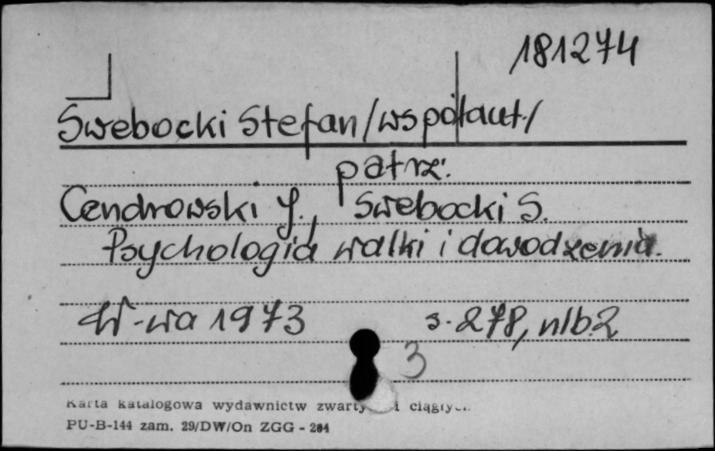 181274
Swebocki Stefan /współaut./
patrz:
Cendrowski J., Swebocki S.
Psychologia walki i dowodzenia.
W-wa 1973 s. 278, nlb. 2
3
Karta katalogowa wydawnictw
PU-B-144 zam. 29/DW/On ZGG - 284